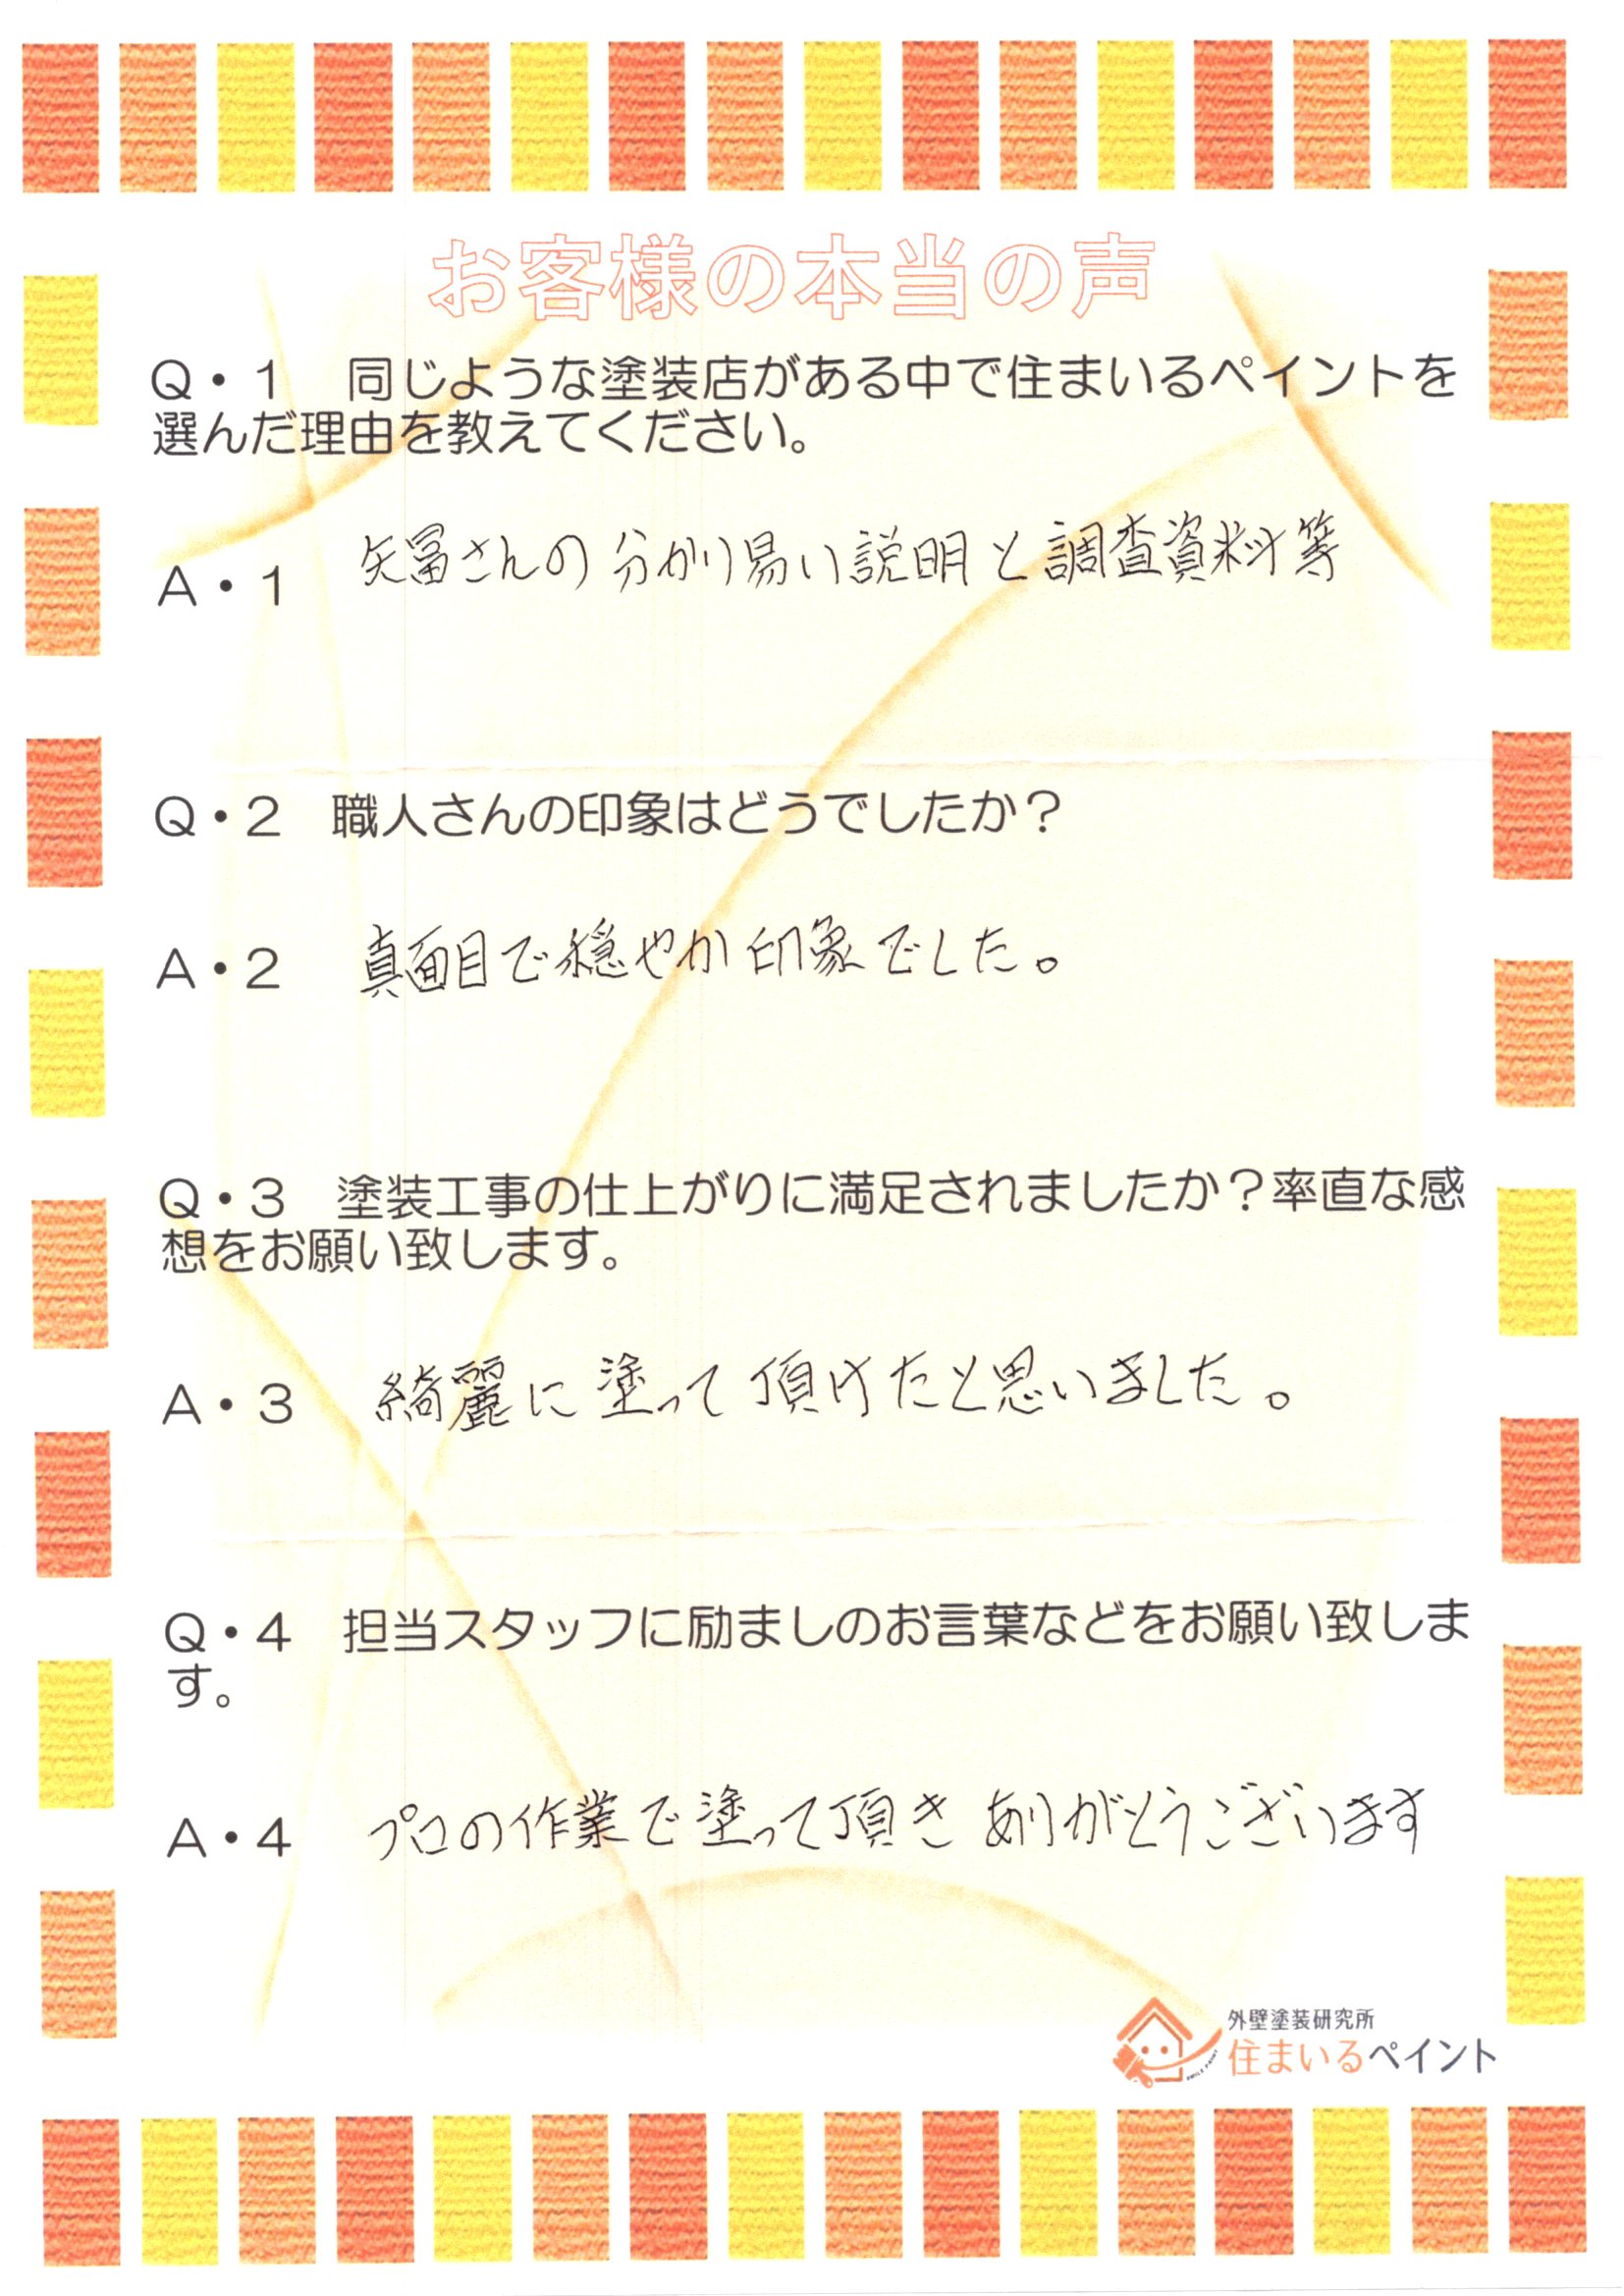 お客様の本当の声
Q・1　同じような塗装店がある中で住まいるペイントを
選んだ理由を教えてください。
A・1　矢冨さんの分かり易い説明と調査資料等
Q・2　職人さんの印象はどうでしたか？
A・2　真面目で穏やか印象でした。
Q・3　塗装工事の仕上がりに満足されましたか？率直な感
想をお願い致します。
A・3　綺麗に塗って頂けたと思いました。
Q・4　担当スタッフに励ましのお言葉などをお願い致しま
す。
A・4　プロの作業で塗って頂きありがとうございます
外壁塗装研究所
住まいるペイント